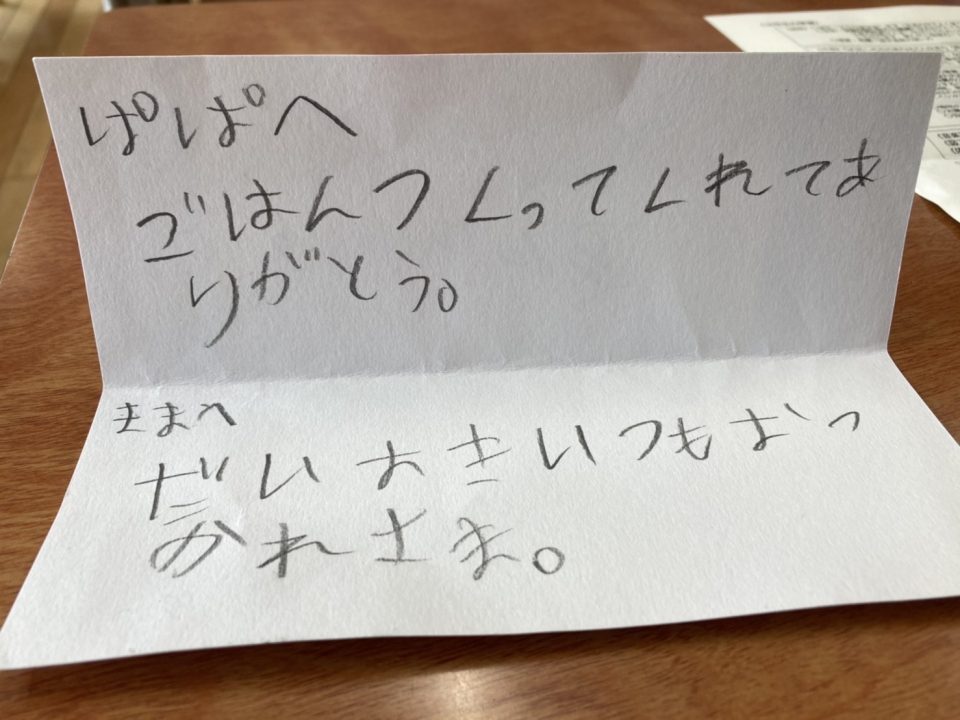 ぱぱへ
ごはんつくってくれてあ
りがとう。
ままへ
だいすきいつもおつ
かれさま。